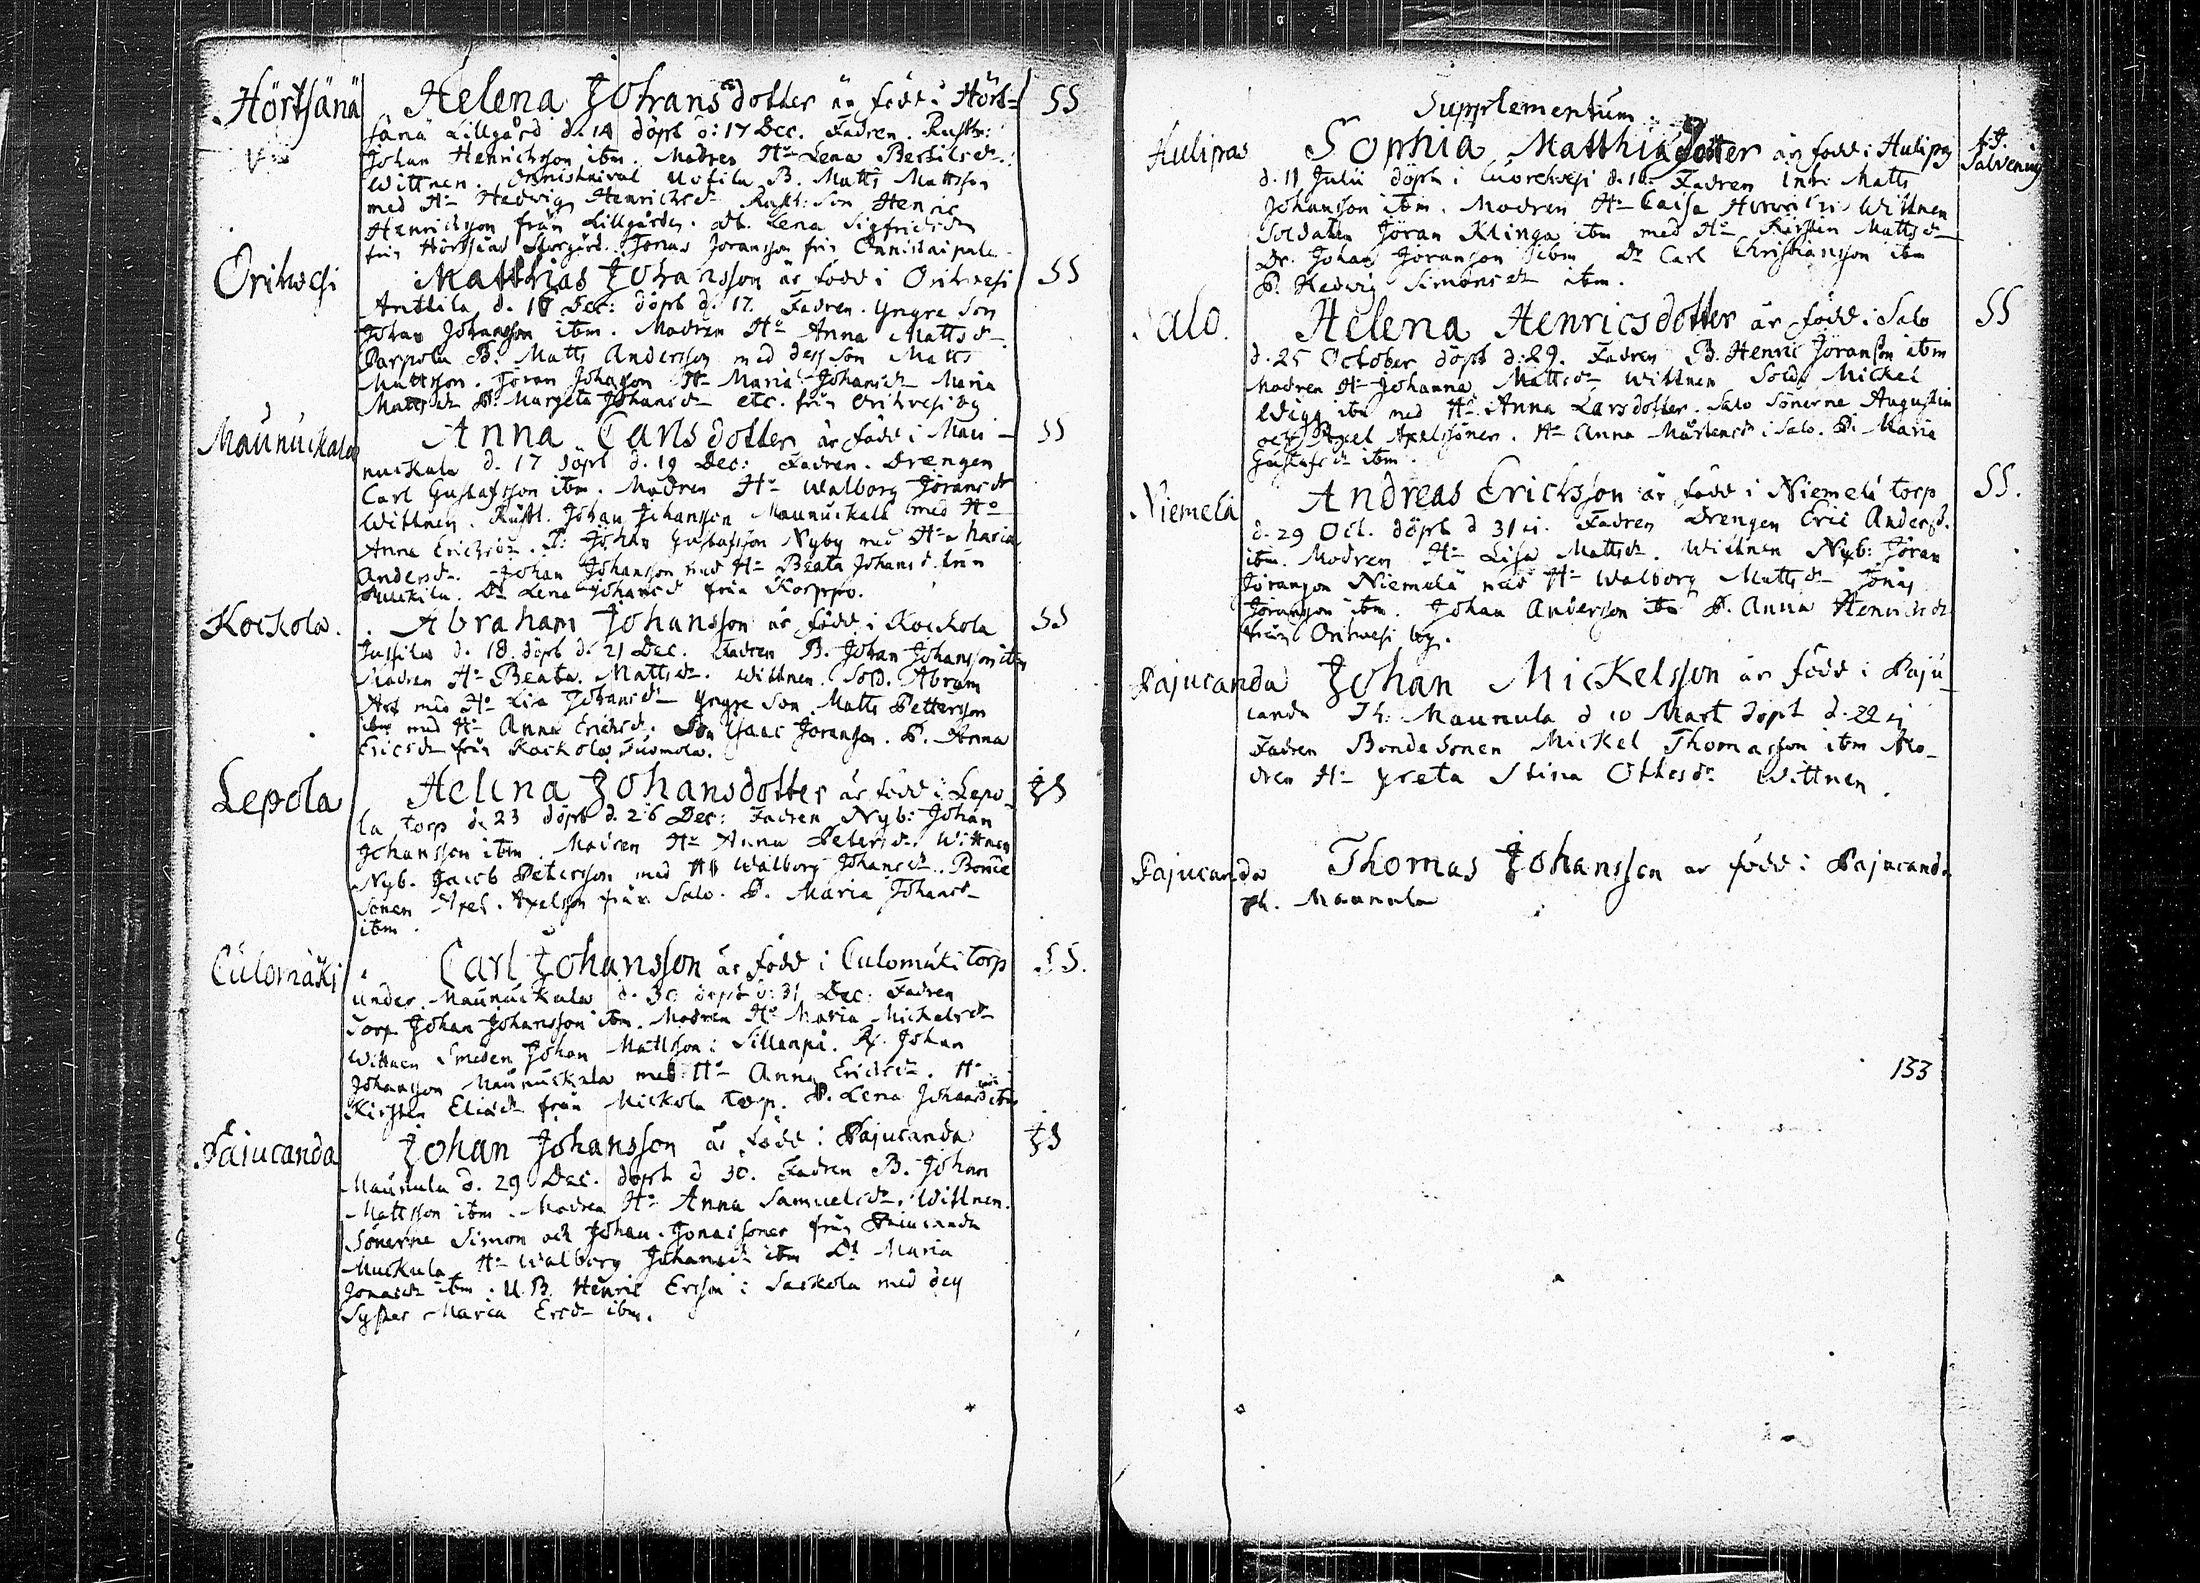 Hörtsänä Helena Johansdotter är född i Hört= SS
sänä Lillgård d. 14 döpt d: 17 Dec. Fadren. Rusth:
Johan Henrichsson ibm. Modren Ho Lena Bertilsdr.
Wittnen. Uotila B. Matts Mattsson
med Ho Hedvig Henrichsdr Rusth: Son Henric
Henrichsson från Lillgården. Lena Sigfridsdr
från Hörtsänä Storgård. Jonas Joransson från Onnistaipale
Orihwesi Matthias Johansson är född i Orihwesi SS
Anttila d. 16 Dec: döpt d. 17. Fadren. Yngre Son
Johan Johansson ibm. Modren Ho Anna Mattsdr
Parpola B. Matts Andersson med dess Son Matts
Mattsson. Jöran Johansson Ho Maria Johansdr Maria
Mattsdr P. Margeta Johansdr etc. från Orihvesi by
Maunuckala Anna Carlsdotter är född i Mau- SS
nuckala d. 17 döpt d. 19 Dec: Fadren. Drengen
Carl Gustafsson ibm. Modren Ho Walborg Jöransdr
Wittnen. Rustl. Johan Johansson Maunuckala med Ho
Anna Erichsdr. Johan Gustafsson Nyby med Ho Maria
Andersdr. Johan Johansson med Ho Beata Johansd. från
Lena Johansd från Korppo.
Kockola. Abraham Johansson är född i Kockola SS
Jussila d. 18. döpt d. 21 Dec. Fadren B. Johan Johansson ibm
Modren Ho Beata. Mattsdr. Wittnen. Sold. Abram
med Ho Lisa Johansdr Yngre Son Matts Pettersson
ibm med Ho Anna Erichsdr. Isaac Joransson. P. Anna
Ericsdr från Kockola Tuomola.
Lepola Helena Johansdotter är född i Lepo- JS
la torp d. 23 döpt d. 26 Dec: Fadren Nyb: Johan
Johansson ibm. Modren Ho Anna Petersdr. Wittnen
Nyb. Jacob Petersson med Ho Walborg Johansdr. Bonde
Sonen Axel. Axelsson från Salo. P. Maria Johansdr
ibm.
Culomäki Carl Johansson är född i Culomäki torp SS.
under Maunuckala d. 30 döpt d: 31 Dec: Fadren
Torp Johan Johansson ibm. Modren Ho Maria Mickelsdr
Wittnen Smeden Johan Mattsson i Sillanpä. Johan
Johansson Maunuckala med Ho Anna Ericsdr. Ho
Kirsten Eliædr från Mickola torp. P. Lena Johansd ibm
Pajucanda Johan Johansson är född i Pajucanda JS
Maunula d. 29 Dec. döpt d 30. Fadren B. Johan
Mattsson ibm. Modren Ho Anna Samuelsdr. Wittnen.
Sönerne Simon och Johan. Jonaisöner från Pajucanda
Muckula. Ho Walborg Johansdr ibm Maria
Jonasdr ibm. U. B. Henric Ersson i Sackola med dess
Syster Maria Ersdr ibm.
Supplementum
Hulipas Sophia Matthiædotter är född i Hulipas
d. 11 Julii döpt i Cuorehvesi d. 16 Fadren Inh: Matts
Johansson ibm. Modren Ho Caisa Wittnen
Soldaten Jöran Klinga ibm med Ho Kirsten Mattsdr
Dr. Johan Joransson ibm Dr Carl Christiansson ibm
P. Hedvig Simonsdr ibm.
Salo. Helena Henricsdotter är född i Salo SS
d. 25 October döpt d: 29. Fadren B. Henric Jöransson ibm
Modren Ho Johanna Mattsdr Wittnen Sold. Mickel
Wigg ibm med Ho. Anna Larsdotter. Salo Sönerne Augustin
och Axel Axelssöner. Ho Anna Mårtensd i Salo. P. Maria
Gustafsdr ibm.
Niemelä Andreas Erichsson är född i Niemelä torp SS.
d. 29 Oct. döpt d 31 ej. Fadren Drengen Eric Anderss.
ibm. Modren Ho Lisa Mattsdr. Wittnen Nyb: Jöran
Jöransson Niemelä med Ho Walborg Mattsdr Jonas
Jöransson ibm. Johan Andersson ibm P. Anna Henricsdr
från Orihvesi by.
Pajucanda Johan Mickelsson är född i Paju-
canda Th. Maunula d 10 Mart döpt d. 22 ej
Fadren Bondesonen Mickel Thomasson ibm Mo-
dren Ho Greta Stina Ottosdr Wittnen.
Pajucanda Thomas Johansson är född i Pajucanda
Th. Maunula
153